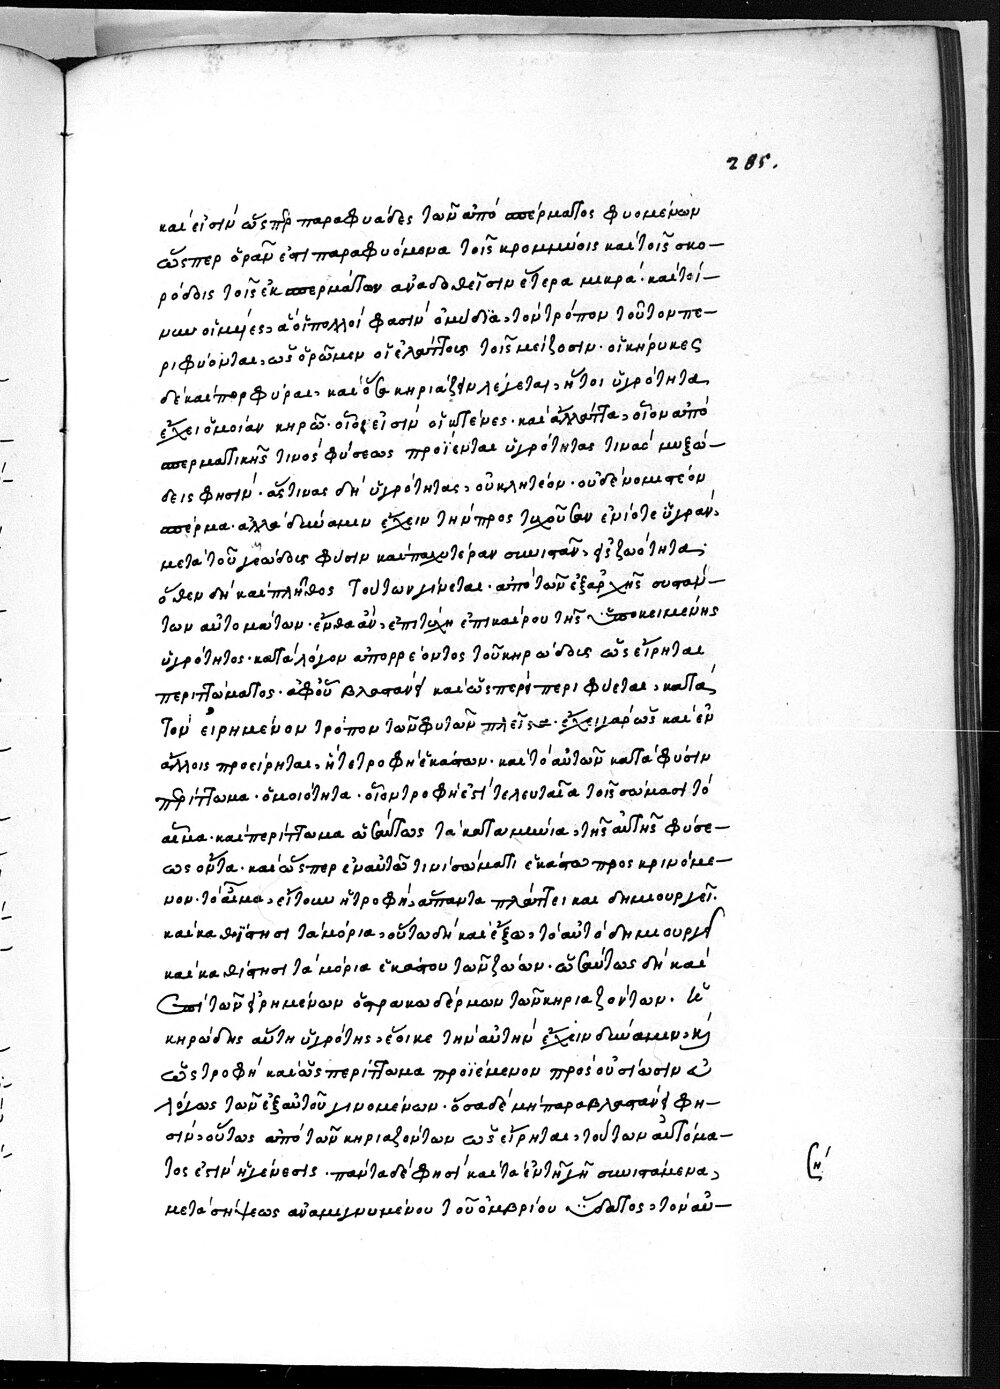 285.
καὶ εἰσὶν ὥσπερ παραφυάδες τῶν ἀπὸ σπέρματος φυομένων
ὥσπερ ὁρᾶν ἐστι παραφυόμενα τοῖς κρομμύοις καὶ τοῖς σκο-
ρόδοις τοῖς ἐκ σπερμάτων ἀναδοθεῖσιν ἕτερα μικρά. καὶ τοί-
νυν οἱ μύες, ἃ οἱ πολλοί φασιν ὀμύδϊα, τὸν τρόπον τοῦτον πε-
ριφύονται, ὡς ὁρῶμεν οἱ ἐλάττους τοῖς μείζοσιν. οἱ κήρυκες
δὲ καὶ πορφύραι, καὶ ὅσα κηριάζειν λέγεται, ἤτοι ὑγρότητα
ἔχει ὁμοίαν κηρῶ. οἷοι εἰσὶν οἱ κτένες. καὶ ἄλλάττα, οἷον ἀπὸ
σπερματικῆς τινὸς φύσεως προΐενται ὑγρότητας τινὰς μυξώ-
δεις φησίν. ἅς τινας δὴ ὑγρότητας, οὐ κλητέον. οὐδὲ νομιστέον
σπέρμα. ἀλλὰ δύναμιν ἔχειν τὴν πρὸς τυχοῦσαν ἐνίοτε ὑγράν,
μετὰ τοῦ γεώδους φύσιν καὶ παχυτέραν συνιστᾶν, εἰς ζωότητα.
ὅθεν δὴ καὶ πλῆθος τούτων γίνεται. ἀπὸ τῶν ἐξαρχῆς συστάν-
των αὐτομάτων. ἔνθα ἂν, ἐπιτύχη ἐπικαίρου τῆς ὑποκειμένης
ὑγρότητος. κατὰ λόγον ἀπορρέοντος τοῦ κηρώδους ὡς εἴρηται
περιττώματος. ἀφ' οὗ βλαστάνει καὶ ὥσπερεὶ περιφύεται, κατὰ
τὸν εἰρημένον τρόπον τῶν φυτῶν πλεῖστα. ἔχει γὰρ ὡς καὶ ἐν
ἄλλοις προείρηται, ἥτε τροφὴ ἑκάστων. καὶ τὸ αὐτῶν κατὰ φύσιν
περίττωμα. ὁμοιότητα. οἷον τροφὴ ἐστὶ τελευταῖα τοῖς σώμασι τὸ
αἷμα. καὶ περίττωμα ὡσαύτως τὰ καταμήνια, τῆς αὐτῆς φύσε-
ως ὄντα. καὶ ὥσπερ ἐν αὐτῶ τινὶ σώματι ἑκάστω προσκρινόμε-
νον. τὸ αἷμα, εἴτουν ἡ τροφή, ἅπαντα πλάττει καὶ δημιουργεῖ.
καὶ καθΐστησι τὰ μόρια, οὕτω δὴ καὶ ἔξω, τὸ αὐτὸ δημιουργεῖ
καὶ καθίστησι τὰ μόρια ἑκάστου τῶν ζώων. ὡσαύτως δὴ καὶ
ἐπὶ τῶν εἰρημένων ὀστρακωδέρμων τῶν κηριαζόντων. ἡ
κηρώδης αὕτη ὑγρότης, ἔοικε τὴν αὐτὴν ἔχειν δύναμιν, καὶ
ὡς τροφὴ καὶ ὡς περίττωμα προϊέμενον πρὸς οὐσίωσιν ἀ-
λόγως τῶν ἐξ αὐτοῦ γινομένων. ὅσα δὲ μὴ παραβλαστάνει φη-
σίν, οὕτως ἀπὸ τῶν κηριαζόντων ὡς εἴρηται, τούτων αὐτόμα-
τος ἐστὶν ἡ γένεσις. πάντα δὲ φησὶ καὶ τὰ ἐν τῆ γῆ συνιστάμενα,
μετὰ σήψεως ἀναμιγνυμένου τοῦ ὀμβρίου ὕδατος, τὸν αὐ-